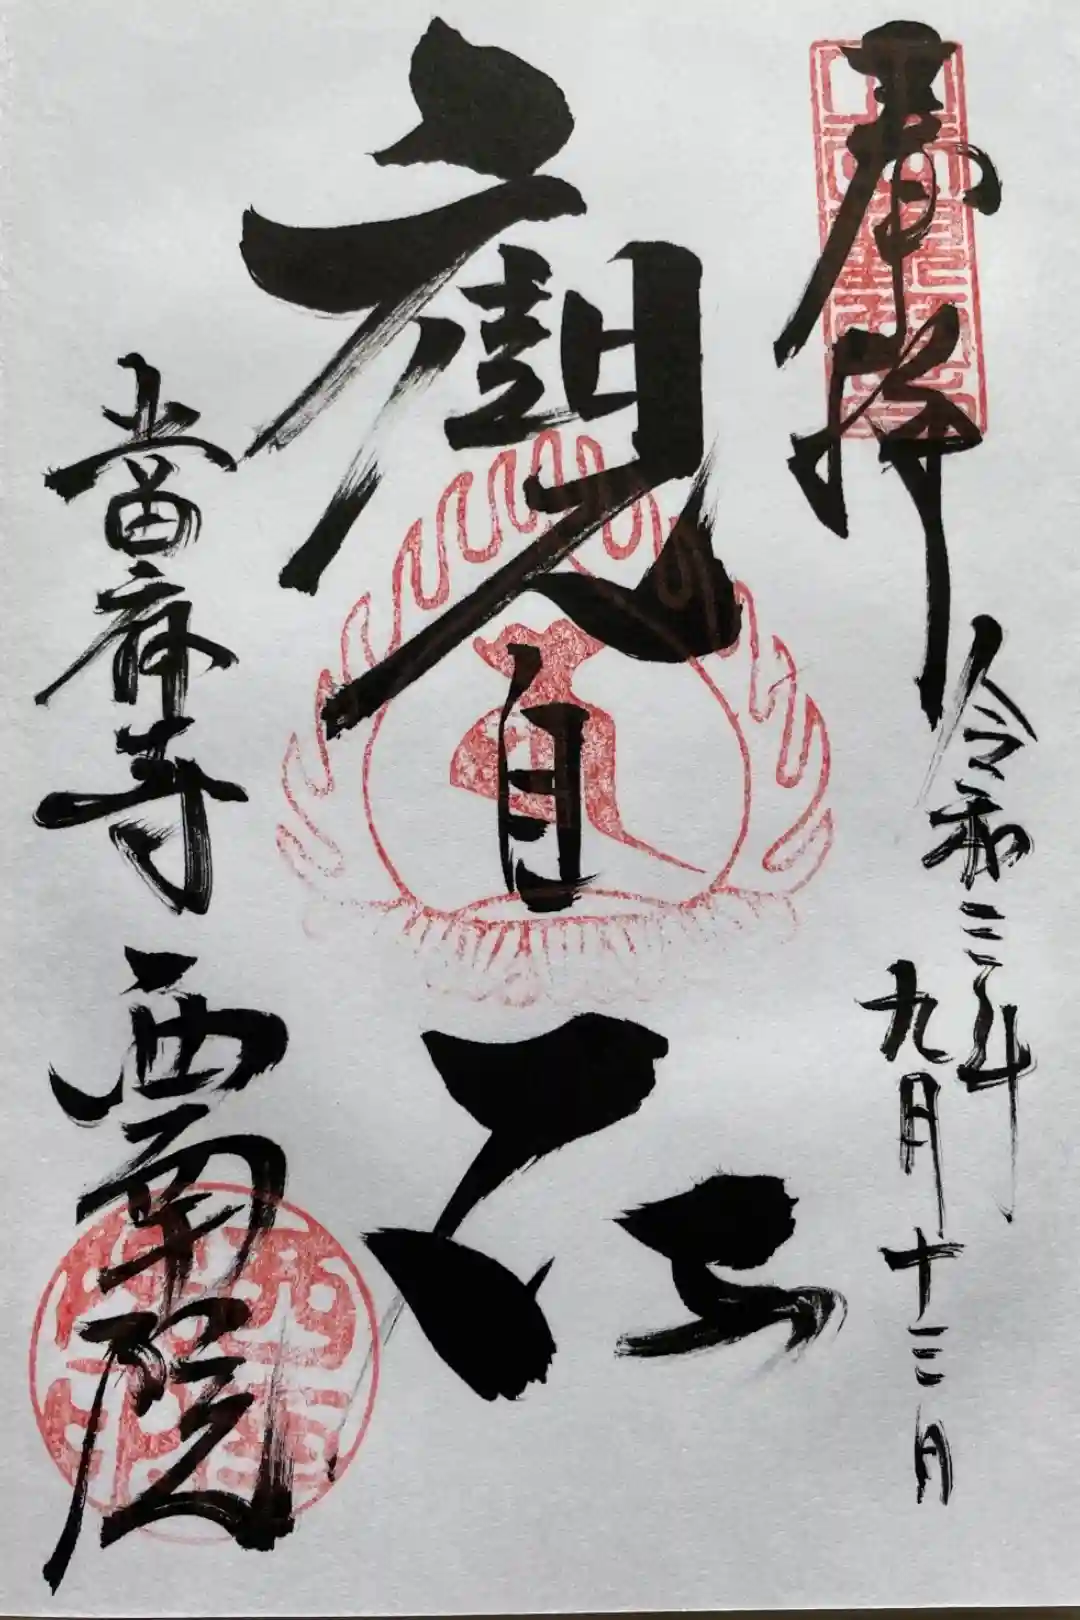 奉拝
令和三年
九月十三日
觀自在
當麻寺 西南院